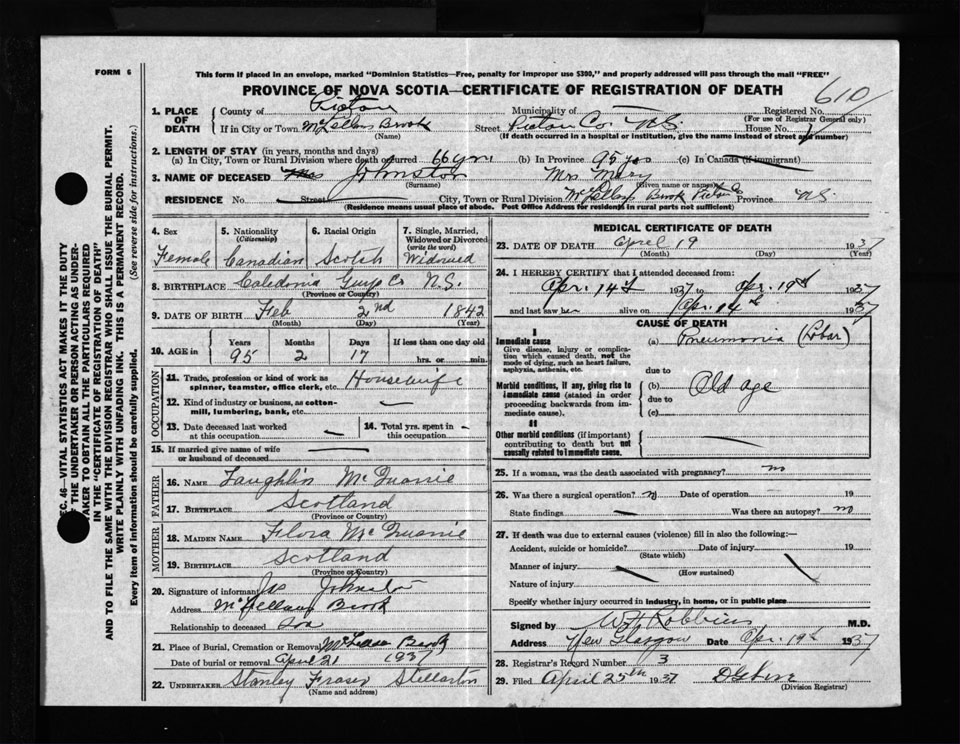 FORM 6
This form if placed in an envelope, marked "Dominion Statistics—Free, penalty for improper use $300," and properly addressed will pass through the mail "FREE"
PROVINCE OF NOVA SCOTIA—CERTIFICATE OF REGISTRATION OF DEATH
610
1. PLACE OF DEATH
County of Pictou Municipality of — Registered No.
(For use of Registrar General only)
If in City or Town McLellans Brook Street Pictou Co N.S. House No.
(Name) (If death occurred in a hospital or institution, give the name instead of street and number)
2. LENGTH OF STAY (in years, months and days)
(a) In City, Town or Rural Division where death occurred 66 yrs (b) In Province 95 yrs (c) In Canada (if immigrant)
3. NAME OF DECEASED Johnston Mrs Mary
(Surname) (Given name or names)
RESIDENCE No. Street City, Town or Rural Division McLellans Brook Pictou Co Province N.S.
(Residence means usual place of abode. Post Office Address for residents in rural parts not sufficient)
4. Sex
Female
5. Nationality
(Citizenship)
Canadian
6. Racial Origin
Scotch
7. Single, Married, Widowed or Divorced
(write the word)
Widowed
8. BIRTHPLACE Caledonia Guys Co N.S.
(Province or Country)
9. DATE OF BIRTH Feb 2nd 1842
(Month) (Day) (Year)
10. AGE in Years Months Days If less than one day old
95 2 17 hrs. or min.
OCCUPATION
11. Trade, profession or kind of work as spinner, teamster, office clerk, etc. Housewife
12. Kind of industry or business, as cotton-mill, lumbering, bank, etc. —
13. Date deceased last worked at this occupation —
14. Total yrs. spent in this occupation —
15. If married give name of wife or husband of deceased —
FATHER
16. NAME Laughlin McQuarrie
17. BIRTHPLACE Scotland
(Province or Country)
MOTHER
18. MAIDEN NAME Flora McQuarrie
19. BIRTHPLACE Scotland
(Province or Country)
20. Signature of informant Johnston
Address McLellans Brook
Relationship to deceased Son
21. Place of Burial, Cremation or Removal Brook
Date of burial or removal April 21 1937
22. UNDERTAKER Stanley Fraser Stellarton
(Name and address)
MEDICAL CERTIFICATE OF DEATH
23. DATE OF DEATH April 19 1937
(Month) (Day) (Year)
24. I HEREBY CERTIFY that I attended deceased from:
Apr. 14th 1937 to Apr. 19th 1937
and last saw her alive on Apr. 14th 1937
CAUSE OF DEATH
I
Immediate cause
Give disease, injury or complication which caused death, not the mode of dying, such as heart failure, asphyxia, asthenia, etc.
(a) Pneumonia (Lobar)
due to
Morbid conditions, if any, giving rise to immediate cause (stated in order proceeding backwards from immediate cause).
(b) Old age
due to
(c)
II
Other morbid conditions (if important) contributing to death but not causally related to immediate cause.
25. If a woman, was the death associated with pregnancy? no
26. Was there a surgical operation? no Date of operation 19
State findings — Was there an autopsy? no
27. If death was due to external causes (violence) fill in also the following:—
Accident, suicide or homicide? Date of injury 19
(State which)
Manner of injury
(How sustained)
Nature of injury
Specify whether injury occurred in industry, in home, or in public place
Signed by W H Robbins M.D.
Address New Glasgow Date Apr. 19th 1937
28. Registrar's Record Number 3
29. Filed April 25th 1937
(Division Registrar)
SEC. 46—VITAL STATISTICS ACT MAKES IT THE DUTY
OF THE UNDERTAKER OR PERSON ACTING AS UNDER-
TAKER TO OBTAIN ALL THE PARTICULARS REQUIRED
IN THE "CERTIFICATE OF REGISTRATION OF DEATH"
AND TO FILE THE SAME WITH THE DIVISION REGISTRAR WHO SHALL ISSUE THE BURIAL PERMIT.
WRITE PLAINLY WITH UNFADING INK. THIS IS A PERMANENT RECORD.
Every item of information should be carefully supplied. (See reverse side for instructions.)